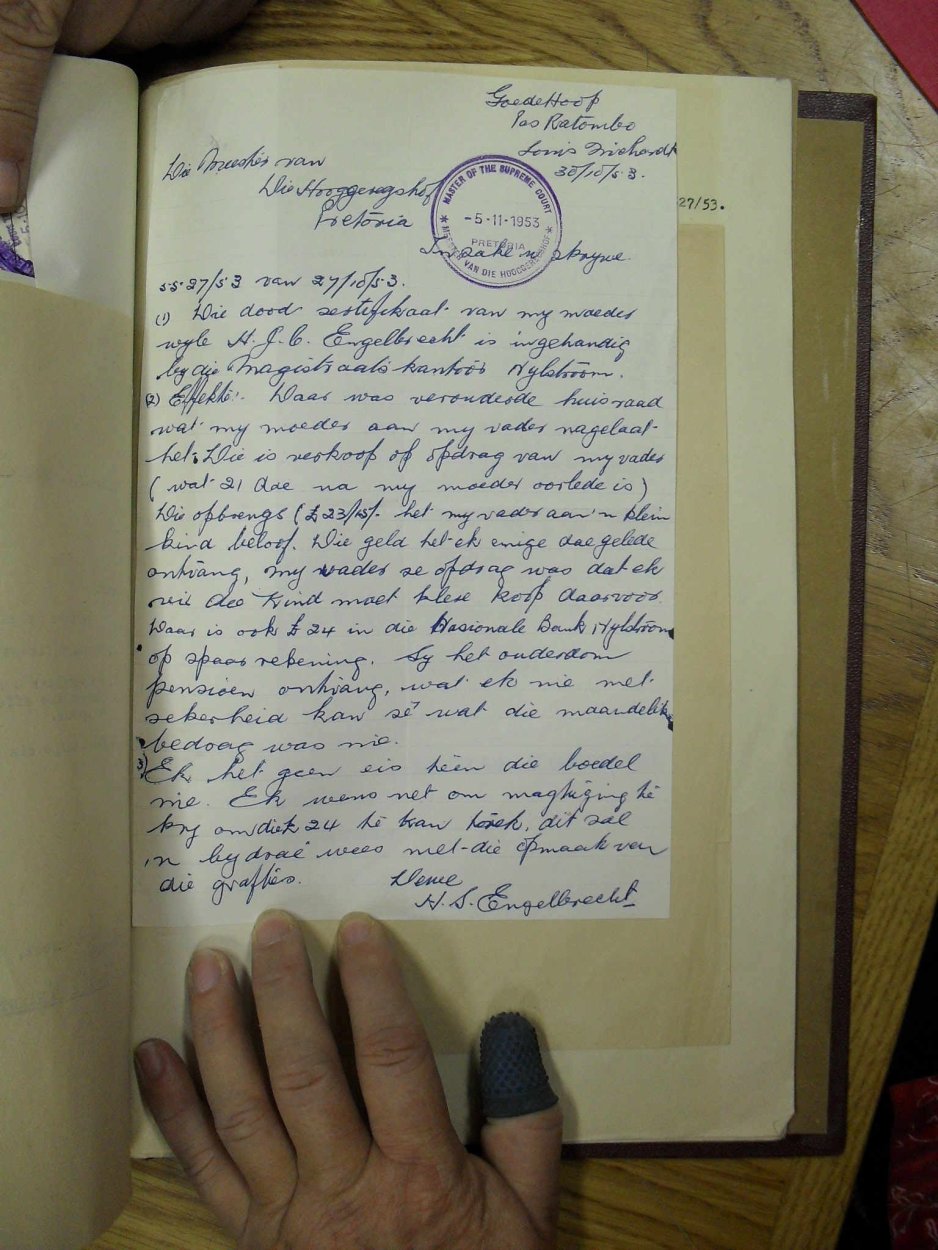 GoedeHoop
Pos Ratombo
Louis Trichardt
30/10/53.
Die Meester van
Die Hooggeregshof
Pretoria
MASTER OF THE SUPREME COURT
-5-11-1953
PRETORIA
MEESTER VAN DIE HOOGGEREGSHOF
27/53.
In sake u skrywe
5527/53 van 27/10/53.
(1) Die dood sertifikaat van my moeder
wyle H. J. C. Engelbrecht is ingehandig
by die Magistraatskantoor Nylstroom.
(2) Effekte:. Daar was verouderde huisraad
wat my moeder aan my vader nagelaat
het. Die is verkoop op opdrag van my vader
(wat 21 dae na my moeder oorlede is)
Die opbrengs (£23/15/- het my vader aan 'n klein
kind beloof. Die geld het ek enige dae gelede
ontvang, my vader se opdrag was dat ek
vir die kind moet klere koop daarvoor.
Daar is ook £24 in die Nasionale Bank Nylstroom
op spaar rekening. Sy het ouderdom
pensioen ontvang, wat ek nie met
sekerheid kan sê wat die maandelik
bedrag was nie.
3) Ek het geen eis teen die boedel
nie. Ek wens net om magtiging te
kry om die £24 te kan trek, dit sal
'n bydrae wees met die opmaak van
die grafte.
Dewe
H. S. Engelbrecht